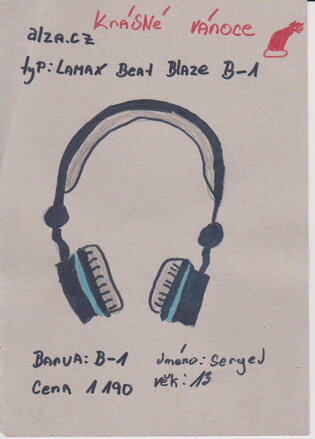 KRÁSNÉ VÁNOCE
alza.cz
typ: LAMAX Beat Blaze B-1
BARVA: B-1
Jméno: Sergej
CENA 1 190
věk: 13